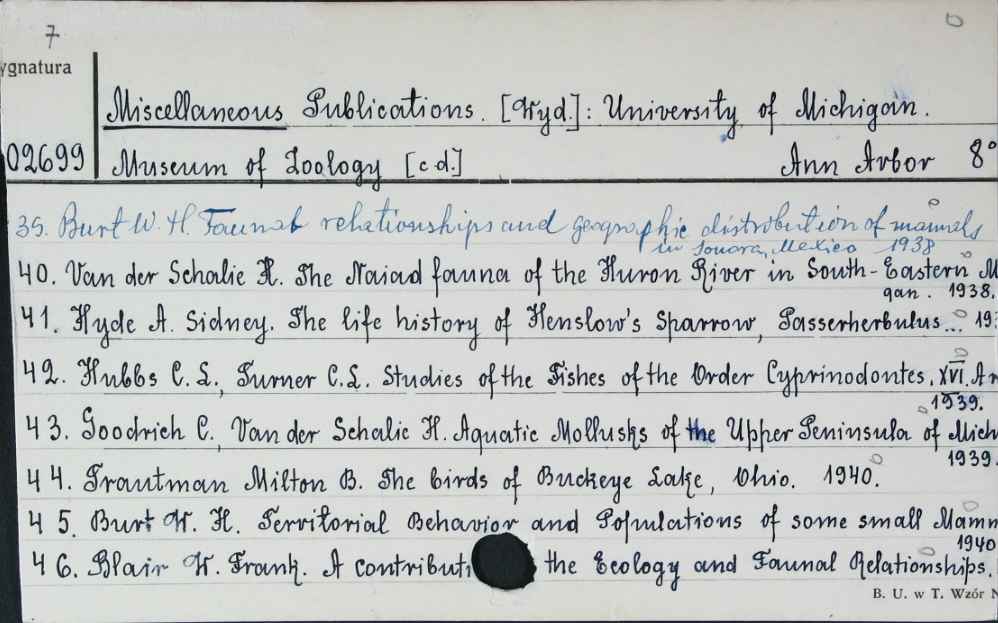 7
ygnatura
Miscellaneous Publications. [Wyd.]: University of Michigan.
02699 Museum of Zoology [c.d.] Ann Arbor 8°
39. Burt W. H. Faunal relationships and geographic distribution of mammals
in Sonora, Mexico 1938
40. Van der Schalie H. The Naiad fauna of the Huron River in South-Eastern M
gan. 1938.
41. Hyde A. Sidney. The life history of Henslow's Sparrow, Passerherbulus... 193
42. Hubbs C. L., Turner C.L. Studies of the Fishes of the Order Cyprinodontes. XVI. A
1939.
43. Goodrich C., Van der Schalie H. Aquatic Mollusks of the Upper Peninsula of Mich
1939.
44. Trautman Milton B. The birds of Buckeye Lake, Ohio. 1940.
45. Burt W. H. Territorial Behavior and Populations of some small Mamm
1940
46. Blair W. Frank. A contributi the Ecology and Faunal Relationships.
B. U. w T. Wzór N